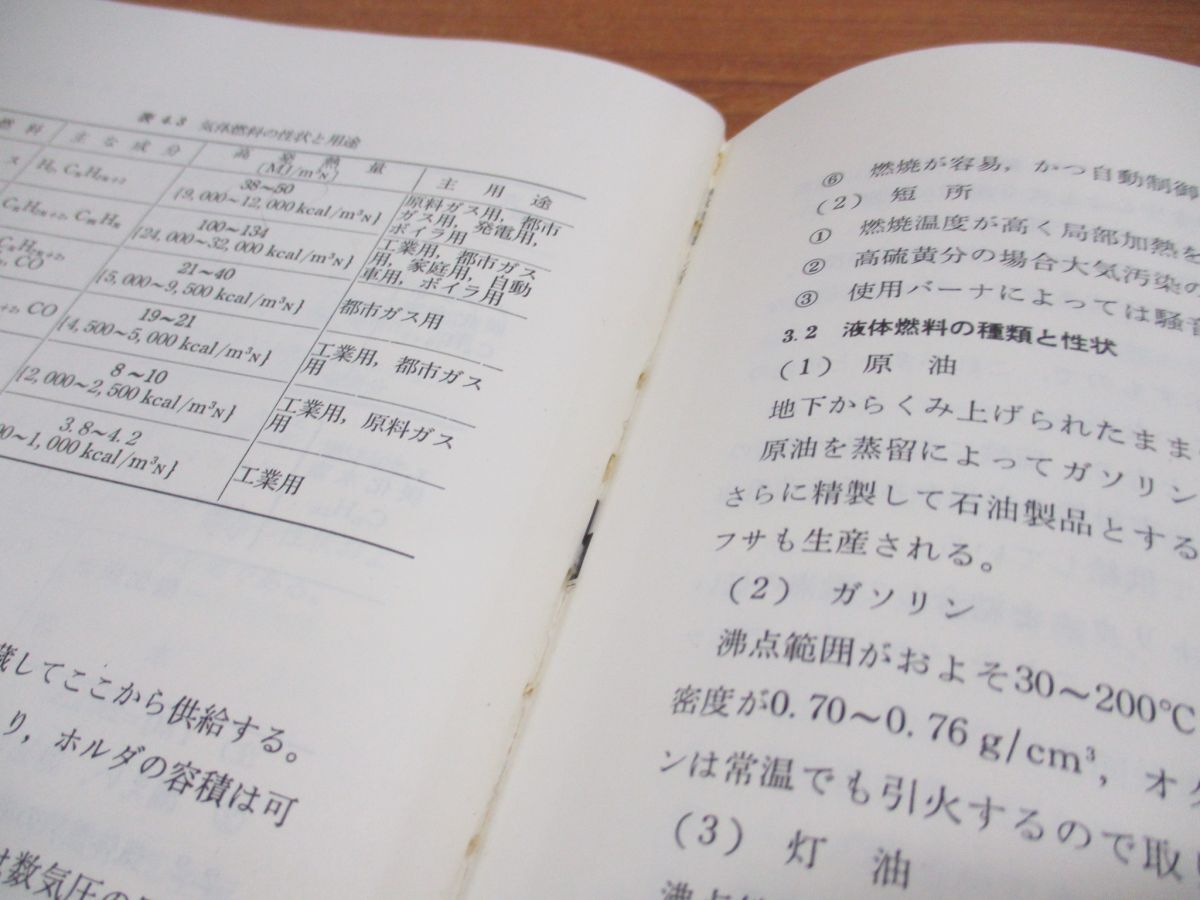 表 4.3 気体燃料の性状と用途
燃料 主な成分 高発熱量 (MJ/m³N) 主用途
ス
38～50
{9,000～12,000 kcal/m³N}
原料ガス用，都市
ガス用，発電用，
ボイラ用
100～134
{24,000～32,000 kcal/m³N}
工業用，都市ガス
用，家庭用，自動
車用，ボイラ用
CO
21～40
{5,000～9,500 kcal/m³N}
都市ガス用
CO
19～21
{4,500～5,000 kcal/m³N}
工業用，都市ガス
用
8～10
{2,000～2,500 kcal/m³N}
工業用，原料ガス
用
3.8～4.2
00～1,000 kcal/m³N}
工業用
蔵してここから供給する。
り，ホルダの容積は可
は数気圧の
⑥ 燃焼が容易，かつ自動制御
(2) 短所
① 燃焼温度が高く局部加熱を
② 高硫黄分の場合大気汚染の
③ 使用バーナによっては騒音
3.2 液体燃料の種類と性状
(1) 原油
地下からくみ上げられたまま
原油を蒸留によってガソリン
さらに精製して石油製品とする
フサも生産される。
(2) ガソリン
沸点範囲がおよそ30～200℃
密度が0.70～0.76 g/cm³，オク
ンは常温でも引火するので取
(3) 灯油
沸点